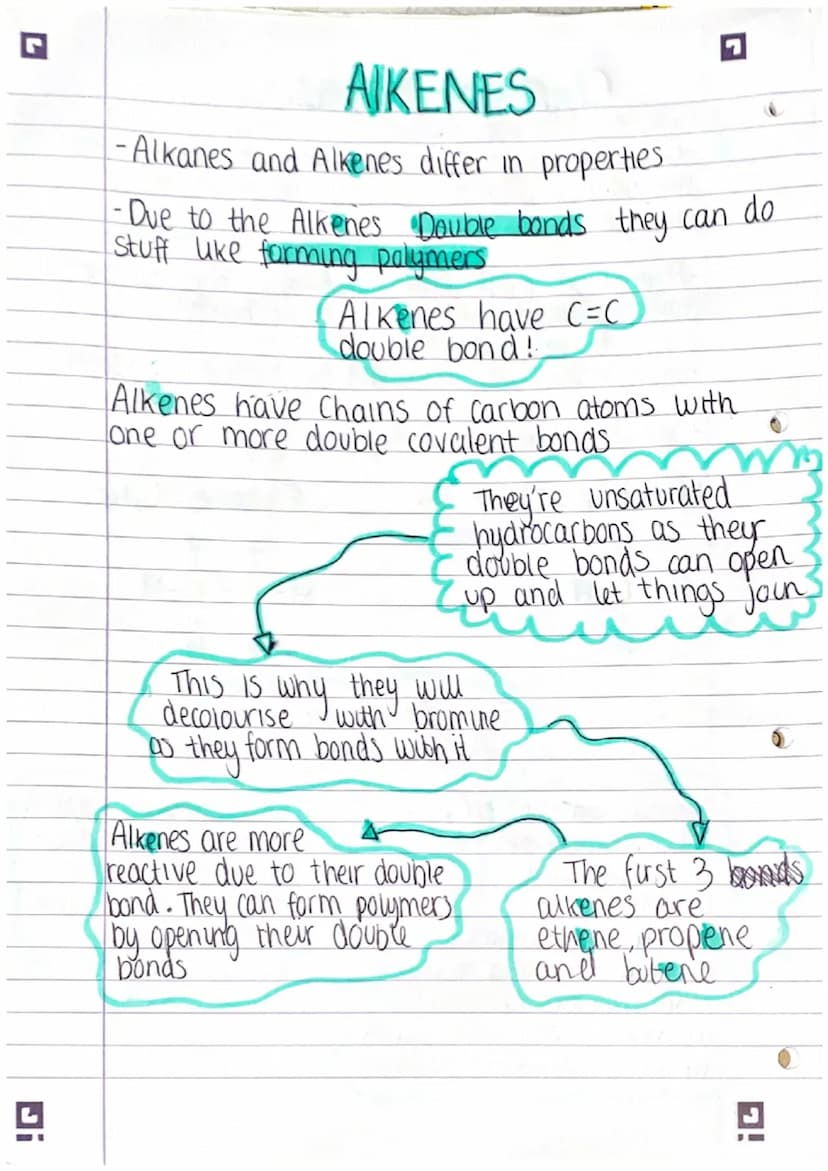 AlKENES
-Alkanes and Alkenes differ in properties
-Due to the Alkenes Double bonds they can do
stuff like forming polymers
Alkenes have C=C
double bond!
Alkenes have chains of carbon atoms with
one or more double covalent bonds
They're unsaturated
hydrocarbons as they
double bonds can open
up and let things join
This is why they will
decolourise with bromine
as they form bonds with it
Alkenes are more
reactive due to their double
bond. They can form polymers
by opening their double
bonds
The first 3 bonds
alkenes are
ethene, propene
and butene